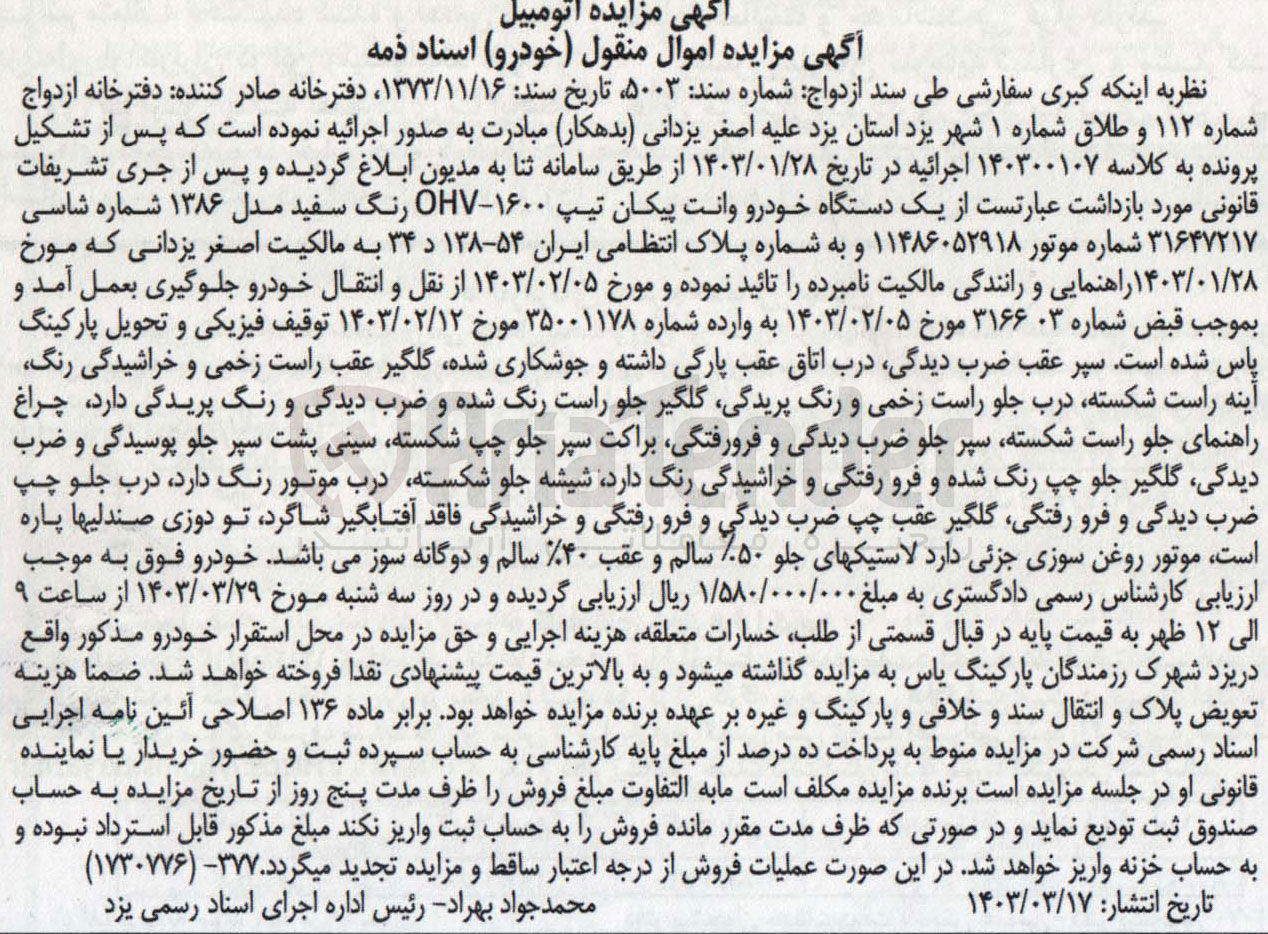 آگهی مزایده اتومبیل
آگهی مزایده اموال منقول (خودرو) اسناد ذمه
نظربه اینکه کبری سفارشی طی سند ازدواج: شماره سند: ۵۰۰۳، تاریخ سند: ۱۳۷۳/۱۱/۱۶، دفترخانه صادر کننده: دفترخانه ازدواج
شماره ۱۱۲ و طلاق شماره ۱ شهر یزد استان یزد علیه اصغر یزدانی (بدهکار) مبادرت به صدور اجرائیه نموده است که پس از تشکیل
پرونده به کلاسه ۱۴۰۳۰۰۱۰۷ اجرائیه در تاریخ ۱۴۰۳/۰۱/۲۸ از طریق سامانه ثنا به مدیون ابلاغ گردیده و پس از جری تشریفات
قانونی مورد بازداشت عبارتست از یک دستگاه خودرو وانت پیکان تیپ ۱۶۰۰-OHV رنگ سفید مدل ۱۳۸۶ شماره شاسی
۳۱۶۴۷۲۱۷ شماره موتور ۱۱۴۸۶۰۵۲۹۱۸ و به شماره پلاک انتظامی ایران ۵۴-۱۳۸ د ۳۴ به مالکیت اصغر یزدانی که مورخ
۱۴۰۳/۰۱/۲۸راهنمایی و رانندگی مالکیت نامبرده را تائید نموده و مورخ ۱۴۰۳/۰۲/۰۵ از نقل و انتقال خودرو جلوگیری بعمل آمد و
بموجب قبض شماره ۰۳ ۳۱۶۶ مورخ ۱۴۰۳/۰۲/۰۵ به وارده شماره ۳۵۰۰۱۱۷۸ مورخ ۱۴۰۳/۰۲/۱۲ توقیف فیزیکی و تحویل پارکینگ
یاس شده است. سپر عقب ضرب دیدگی، درب اتاق عقب پارگی داشته و جوشکاری شده، گلگیر عقب راست زخمی و خراشیدگی رنگ،
آینه راست شکسته، درب جلو راست زخمی و رنگ پریدگی، گلگیر جلو راست رنگ شده و ضرب دیدگی و رنگ پریدگی دارد، چراغ
راهنمای جلو راست شکسته، سپر جلو ضرب دیدگی و فرورفتگی، براکت سپر جلو چپ شکسته، سینی پشت سپر جلو پوسیدگی و ضرب
دیدگی، گلگیر جلو چپ رنگ شده و فرو رفتگی و خراشیدگی رنگ دارد، شیشه جلو شکسته، درب موتور رنگ دارد، درب جلو چپ
ضرب دیدگی و فرو رفتگی، گلگیر عقب چپ ضرب دیدگی و فرو رفتگی و خراشیدگی فاقد آفتابگیر شاگرد، تو دوزی صندلیها پاره
است، موتور روغن سوزی جزئی دارد لاستیکهای جلو ۵۰٪ سالم و عقب ۴۰٪ سالم و دوگانه سوز می باشد. خودرو فوق به موجب
ارزیابی کارشناس رسمی دادگستری به مبلغ۱/۵۸۰/۰۰۰/۰۰۰ ریال ارزیابی گردیده و در روز سه شنبه مورخ ۱۴۰۳/۰۳/۲۹ از ساعت ۹
الی ۱۲ ظهر به قیمت پایه در قبال قسمتی از طلب، خسارات متعلقه، هزینه اجرایی و حق مزایده در محل استقرار خودرو مذکور واقع
دریزد شهرک رزمندگان پارکینگ یاس به مزایده گذاشته میشود و به بالاترین قیمت پیشنهادی نقدا فروخته خواهد شد. ضمنا هزینه
تعویض پلاک و انتقال سند و خلافی و پارکینگ و غیره بر عهده برنده مزایده خواهد بود. برابر ماده ۱۳۶ اصلاحی آئین نامه اجرایی
اسناد رسمی شرکت در مزایده منوط به پرداخت ده درصد از مبلغ پایه کارشناسی به حساب سپرده ثبت و حضور خریدار یا نماینده
قانونی او در جلسه مزایده است برنده مزایده مکلف است مابه التفاوت مبلغ فروش را ظرف مدت پنج روز از تاریخ مزایده به حساب
صندوق ثبت تودیع نماید و در صورتی که ظرف مدت مقرر مانده فروش را به حساب ثبت واریز نکند مبلغ مذکور قابل استرداد نبوده و
به حساب خزنه واریز خواهد شد. در این صورت عملیات فروش از درجه اعتبار ساقط و مزایده تجدید میگردد.۳۷۷- (۱۷۳۰۷۷۶)
تاریخ انتشار: ۱۴۰۳/۰۳/۱۷ محمدجواد بهراد- رئیس اداره اجرای اسناد رسمی یزد
AriaTender